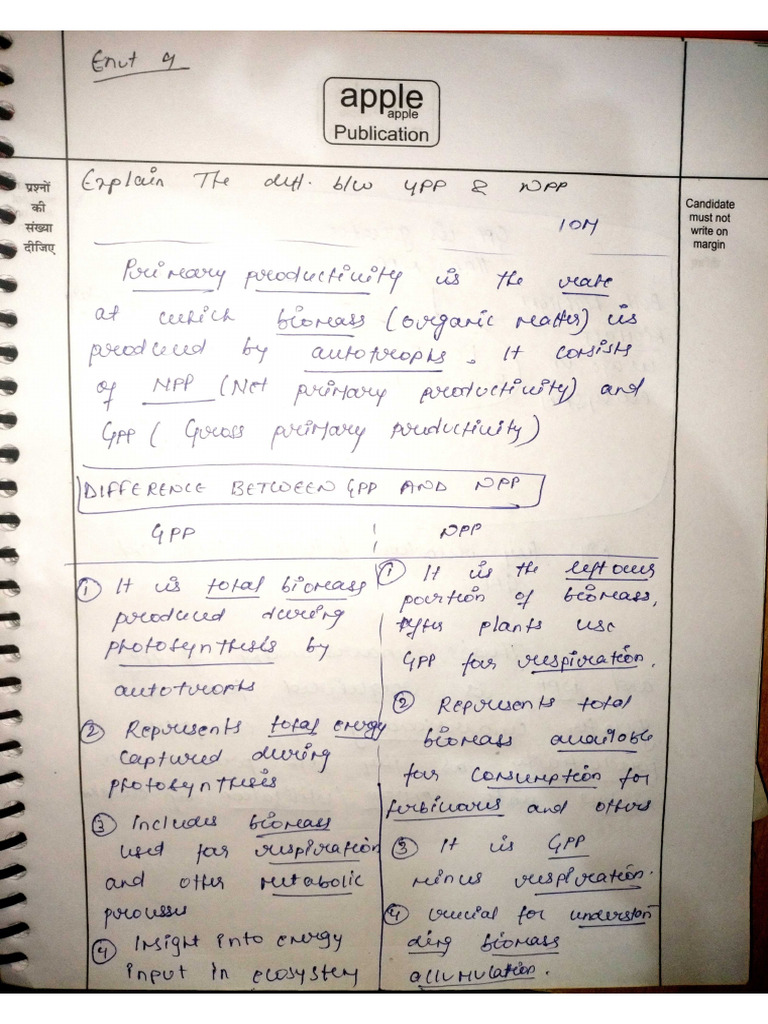 Envt 9
apple
apple
Publication
प्रश्नों
की
संख्या
दीजिए
Candidate
must not
write on
margin
Explain The diff. b/w GPP & NPP
10M
Primary productivity is the rate
at which biomass (organic matter) is
produced by autotrophs. It consists
of NPP (Net primary productivity) and
GPP ( Gross primary productivity)
DIFFERENCE BETWEEN GPP AND NPP
GPP
① It is total biomass
produced during
photosynthesis by
autotrophs
② Represents total energy
captured during
photosynthesis
③ Includes biomass
used for respiration
and other metabolic
process
④ Insight into energy
input in ecosystem
NPP
① It is the leftover
portion of biomass,
after plants use
GPP for respiration.
② Represents total
biomass available
for consumption for
herbivores and others
③ It is GPP
minus respiration.
④ crucial for understan
ding biomass
accumulation.